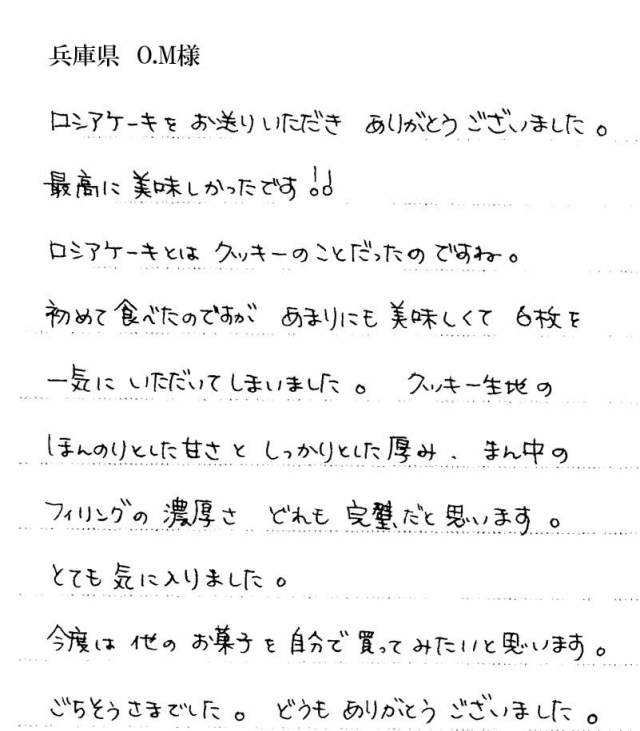 兵庫県 O.M様
ロシアケーキを お送りいただき ありがとうございました。
最高に 美味しかったです!!
ロシアケーキとは クッキーのことだったのですね。
初めて食べたのですが あまりにも 美味しくて 6枚を
一気に いただいてしまいました。 クッキー生地の
ほんのりとした甘さと しっかりとした厚み、まん中の
フィリングの 濃厚さ どれも 完璧だと思います。
とても 気に入りました。
今度は 他の お菓子を 自分で 買ってみたいと思います。
ごちそうさまでした。 どうも ありがとうございました。